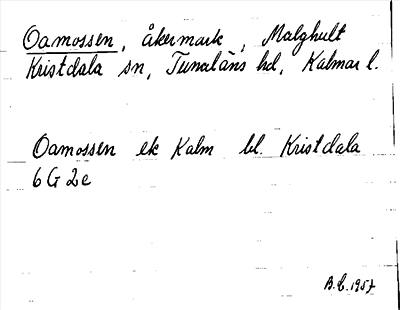 Oamossen, åkermark, Malghult
Kristdala sn, Tunaläns hd, Kalmar l.
Oamossen ek Kalm bl. Kristdala
6 G 2 e